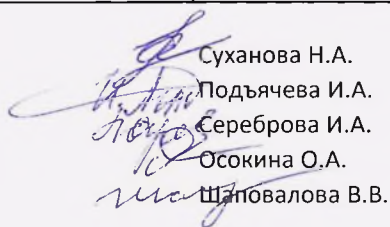 Суханова Н.А.
Подъячева И.А.
Сереброва И.А.
Осокина О.А.
Шаповалова В.В.